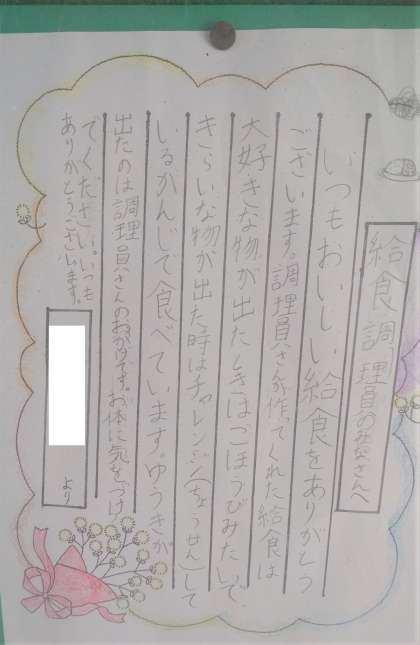 給食調理員のみなさんへ
いつもおいしい給食をありがとう
ございます。調理員さんが作ってくれた給食は
大好きな物が出たときはごほうびみたいで、
きらいな物が出た時はチャレンジ(ちょうせん)して
いるかんじで食べています。ゆうきが
出たのは調理員さんのおかげです。お体に気をつけ
てください。いつも
ありがとうございます。
より